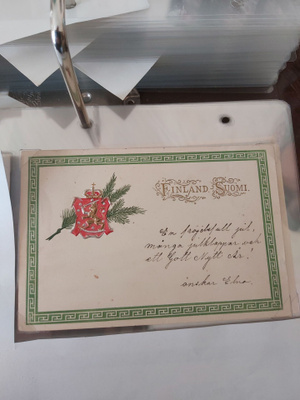 FINLAND SUOMI.
En fröjdefull jul,
många julklappar och
ett Godt Nytt År!
önskar Elna.